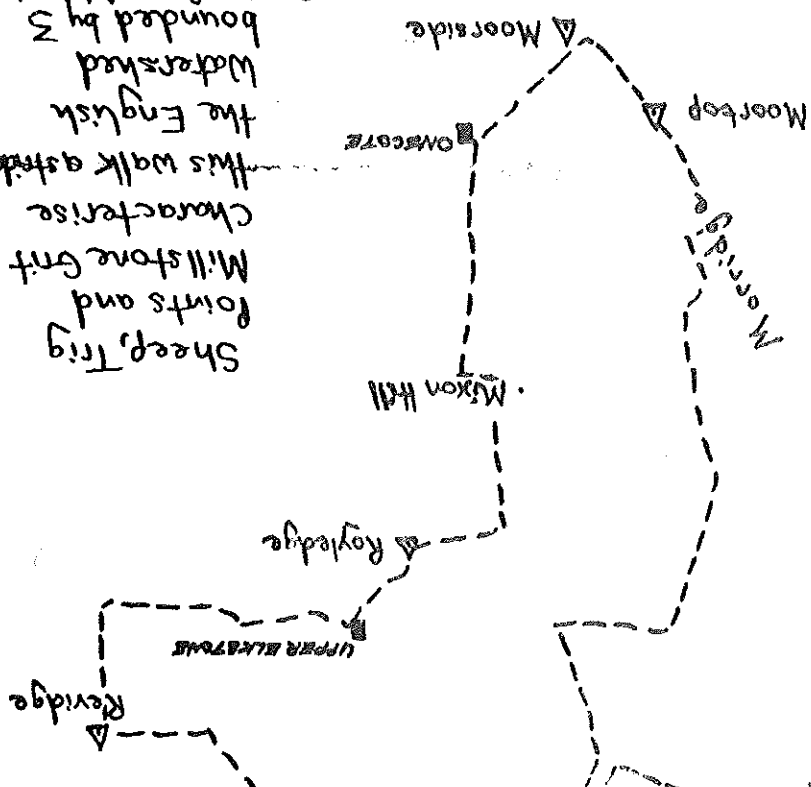 Revidge
UPPER ELKSTONE
Royledge
Mixon Hill
Sheep, Trig
Points and
Millstone Grit
Characterise
this walk astrid
the English
Watershed
bounded by 3
Morridge
Moortop
ONECOTE
Moorside